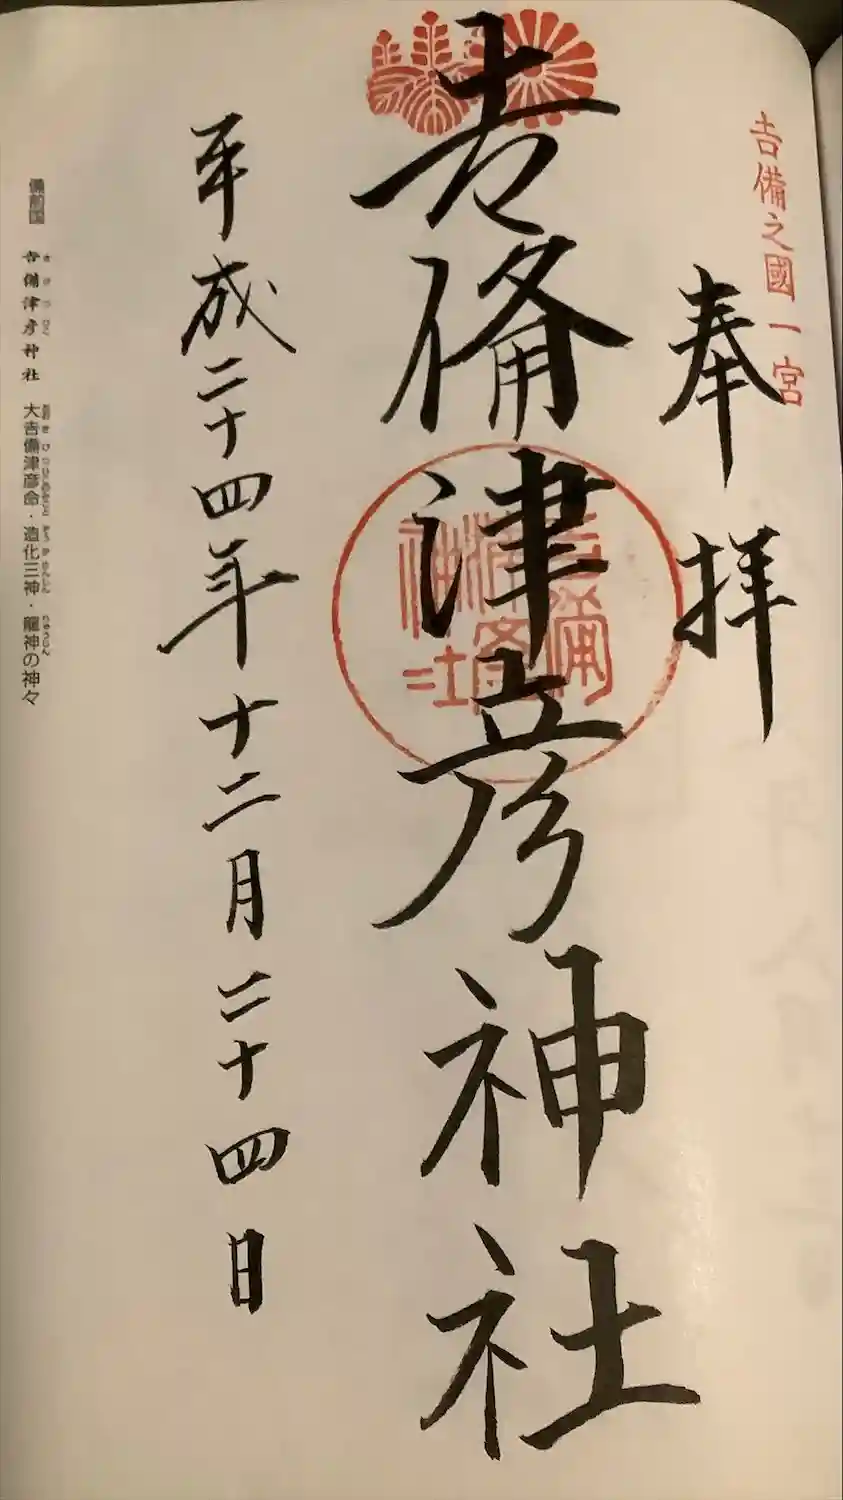 𠮷備之國一宮
奉拝
吉備津彦神社
吉備津彦神社
平成二十四年十二月二十四日
備前国 吉備津彦神社 大吉備津彦命・造化三神・龍神の神々